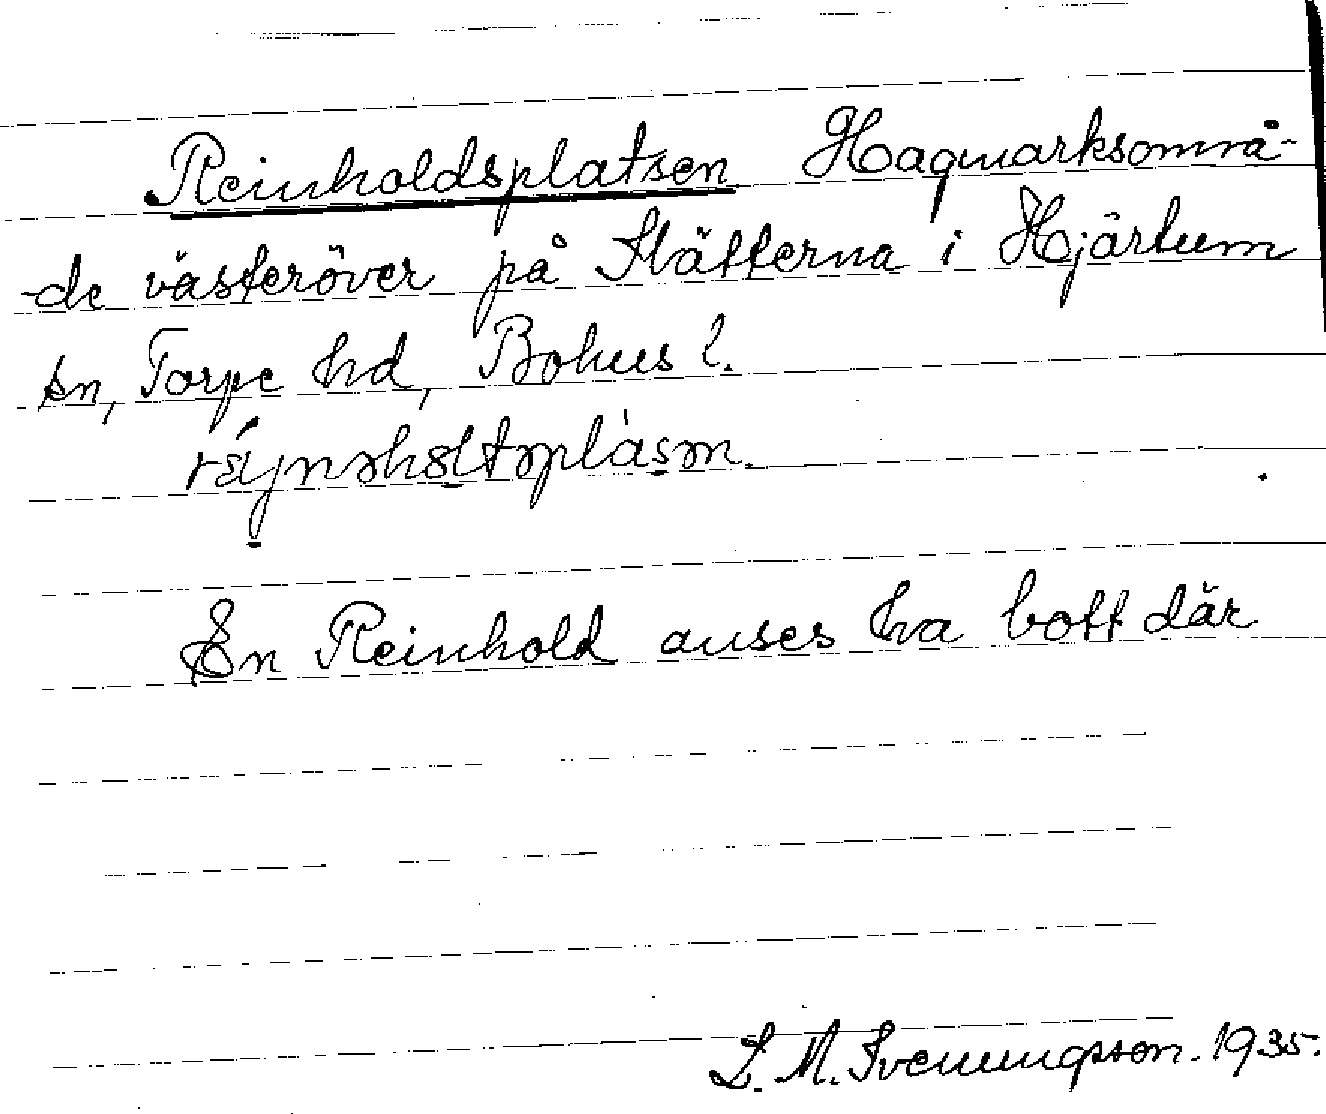 Reinholdsplatsen Hagmarksområ-
-de västeröver på Slätterna i Hjärtum
sn, Torpe hd, Bohus l.
En Reinhold anses ha bott där
L. M. Svenungsson. 1935.